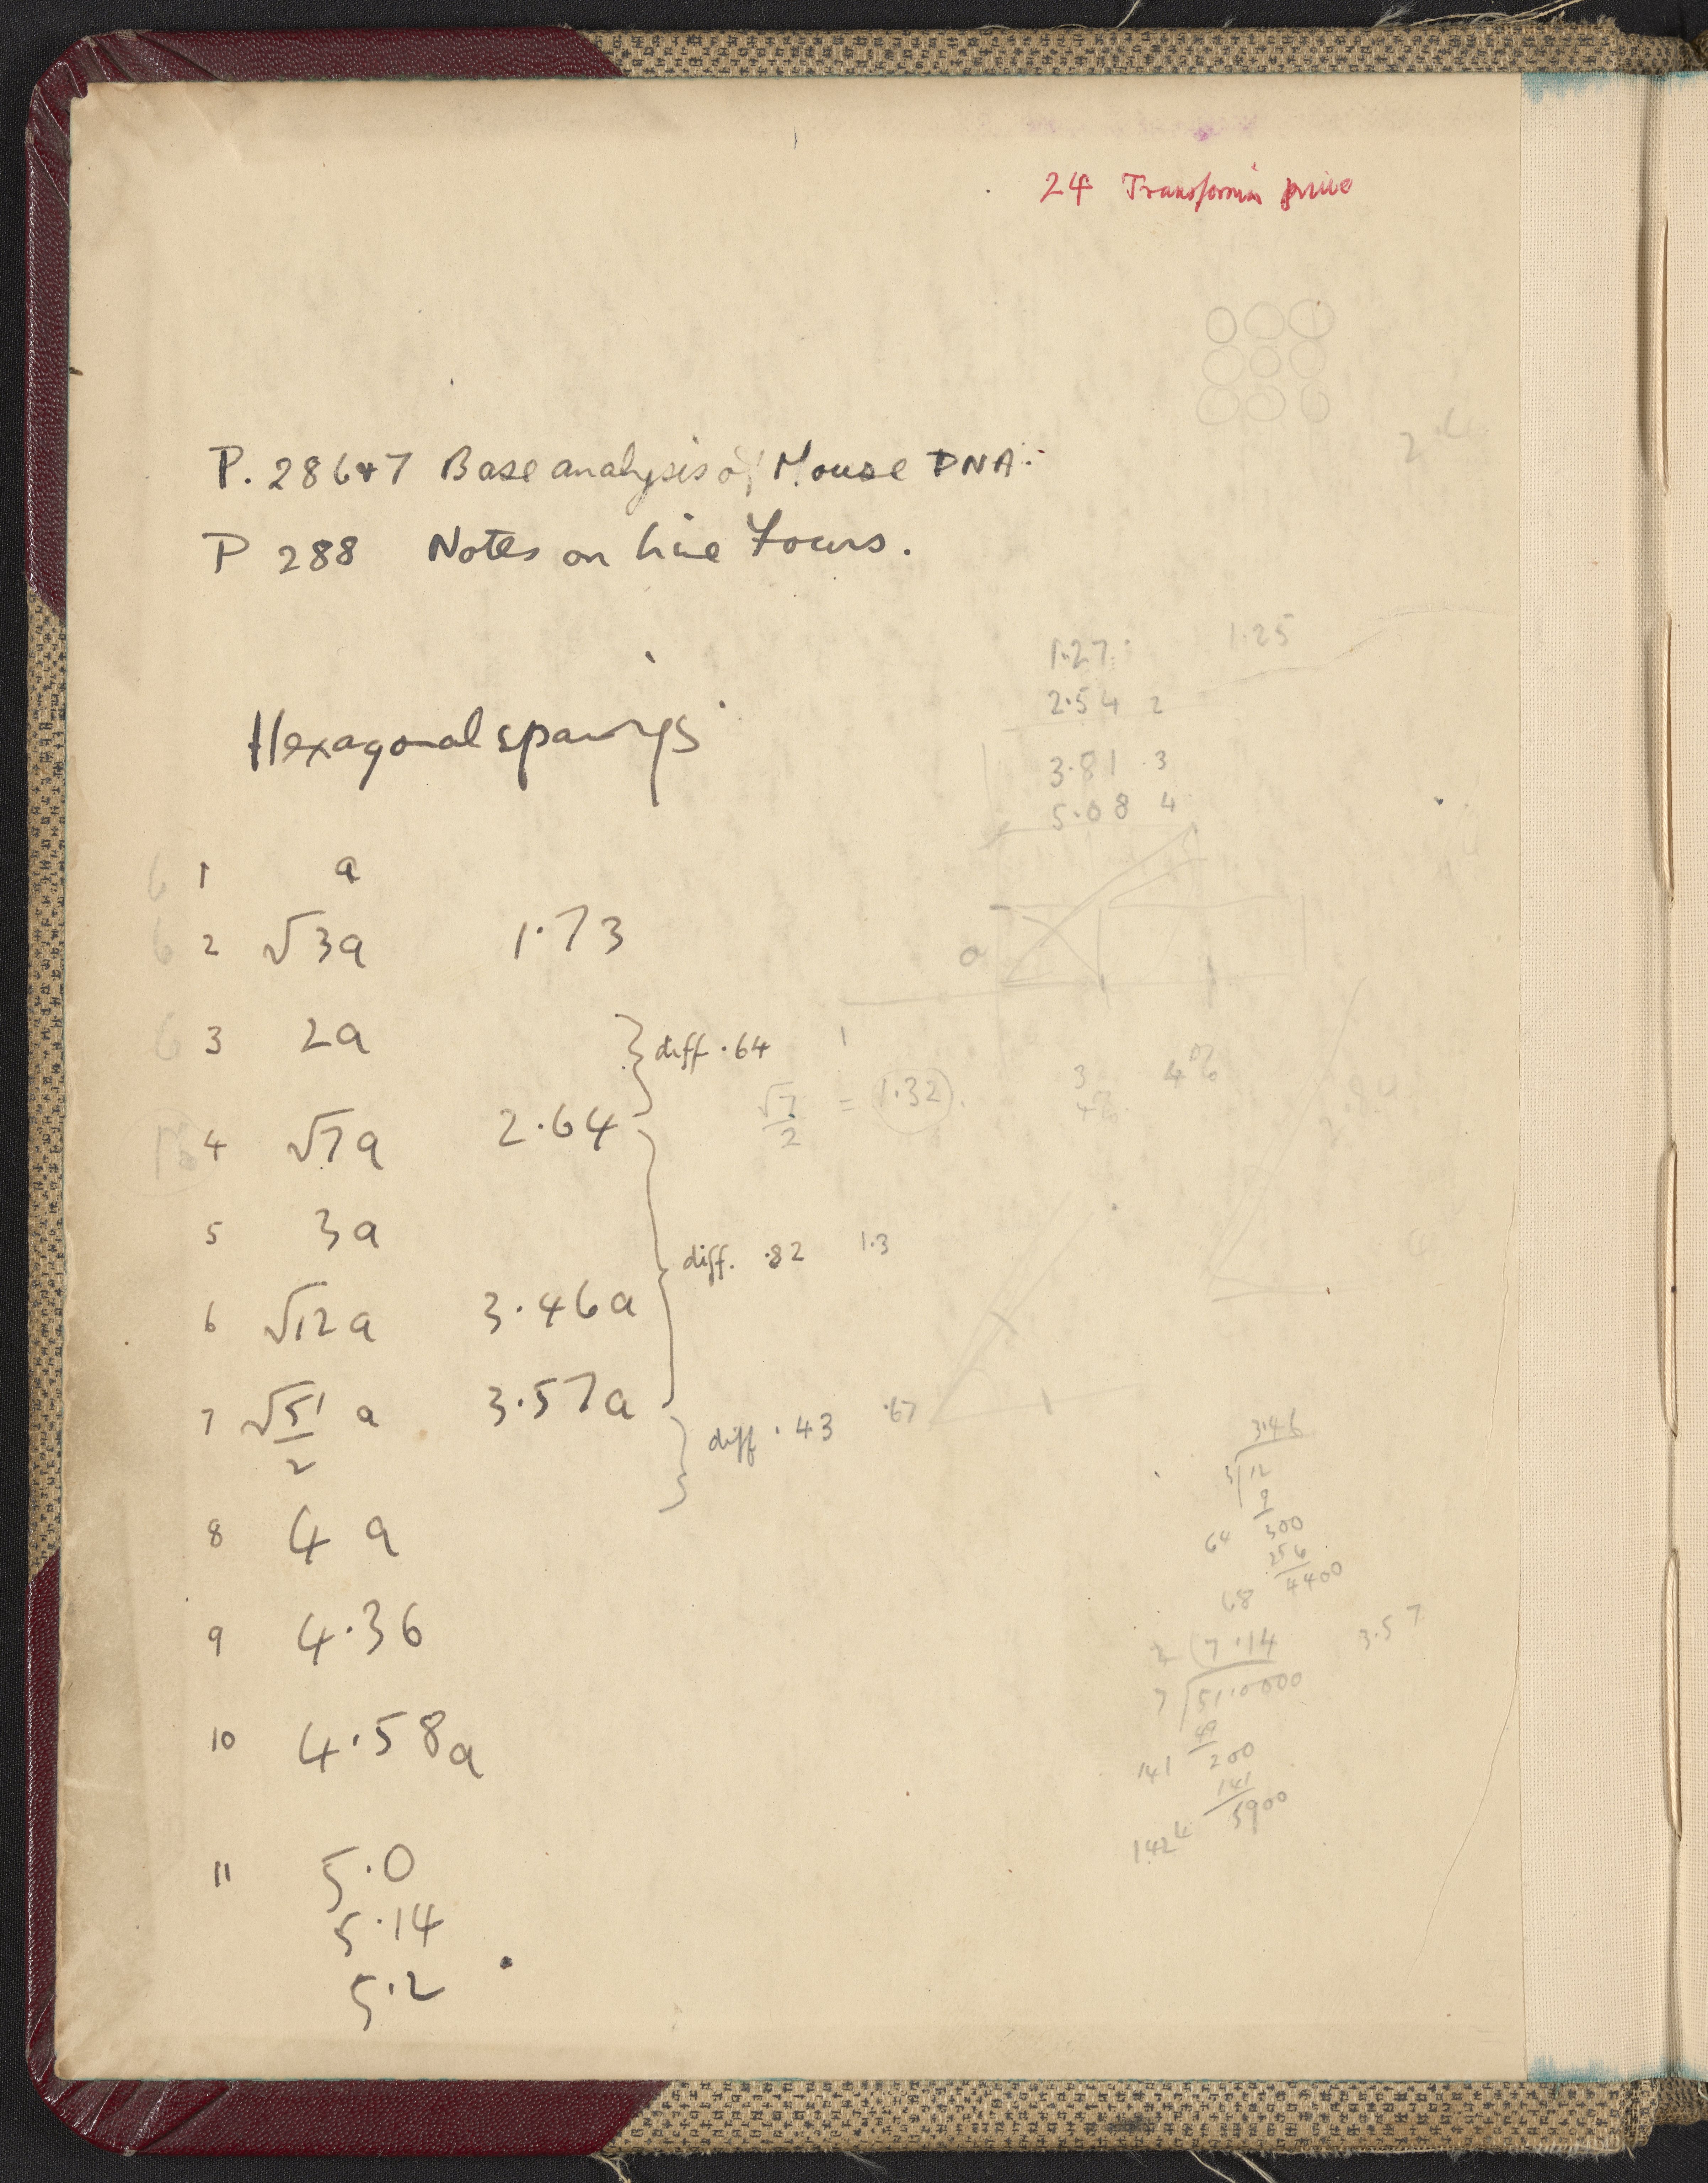 24 Transforming
P. 286+7 Base analysis of Mouse DNA.
P 288 Notes on line focus.
1.27 1.25
2.54 2
3.81 3
5.08 4
Hexagonal spacings
6 1 a
6 2 √3a 1.73
6 3 2a
diff .64
√7/2 = 1.32
3
4 √7a 2.64
5 3a
diff. .82 1.3
6 √12 a 3.46a
7 √51/2 a 3.57a
diff .43 .67
8 4 a
9 4.36
10 4.58a
11 5.0
5.14
5.2
3.46
3 √12
9
64 300
256
68 4400
2 (7.14 3.57
7 √51.0000
49
141 200
141
1424 5900